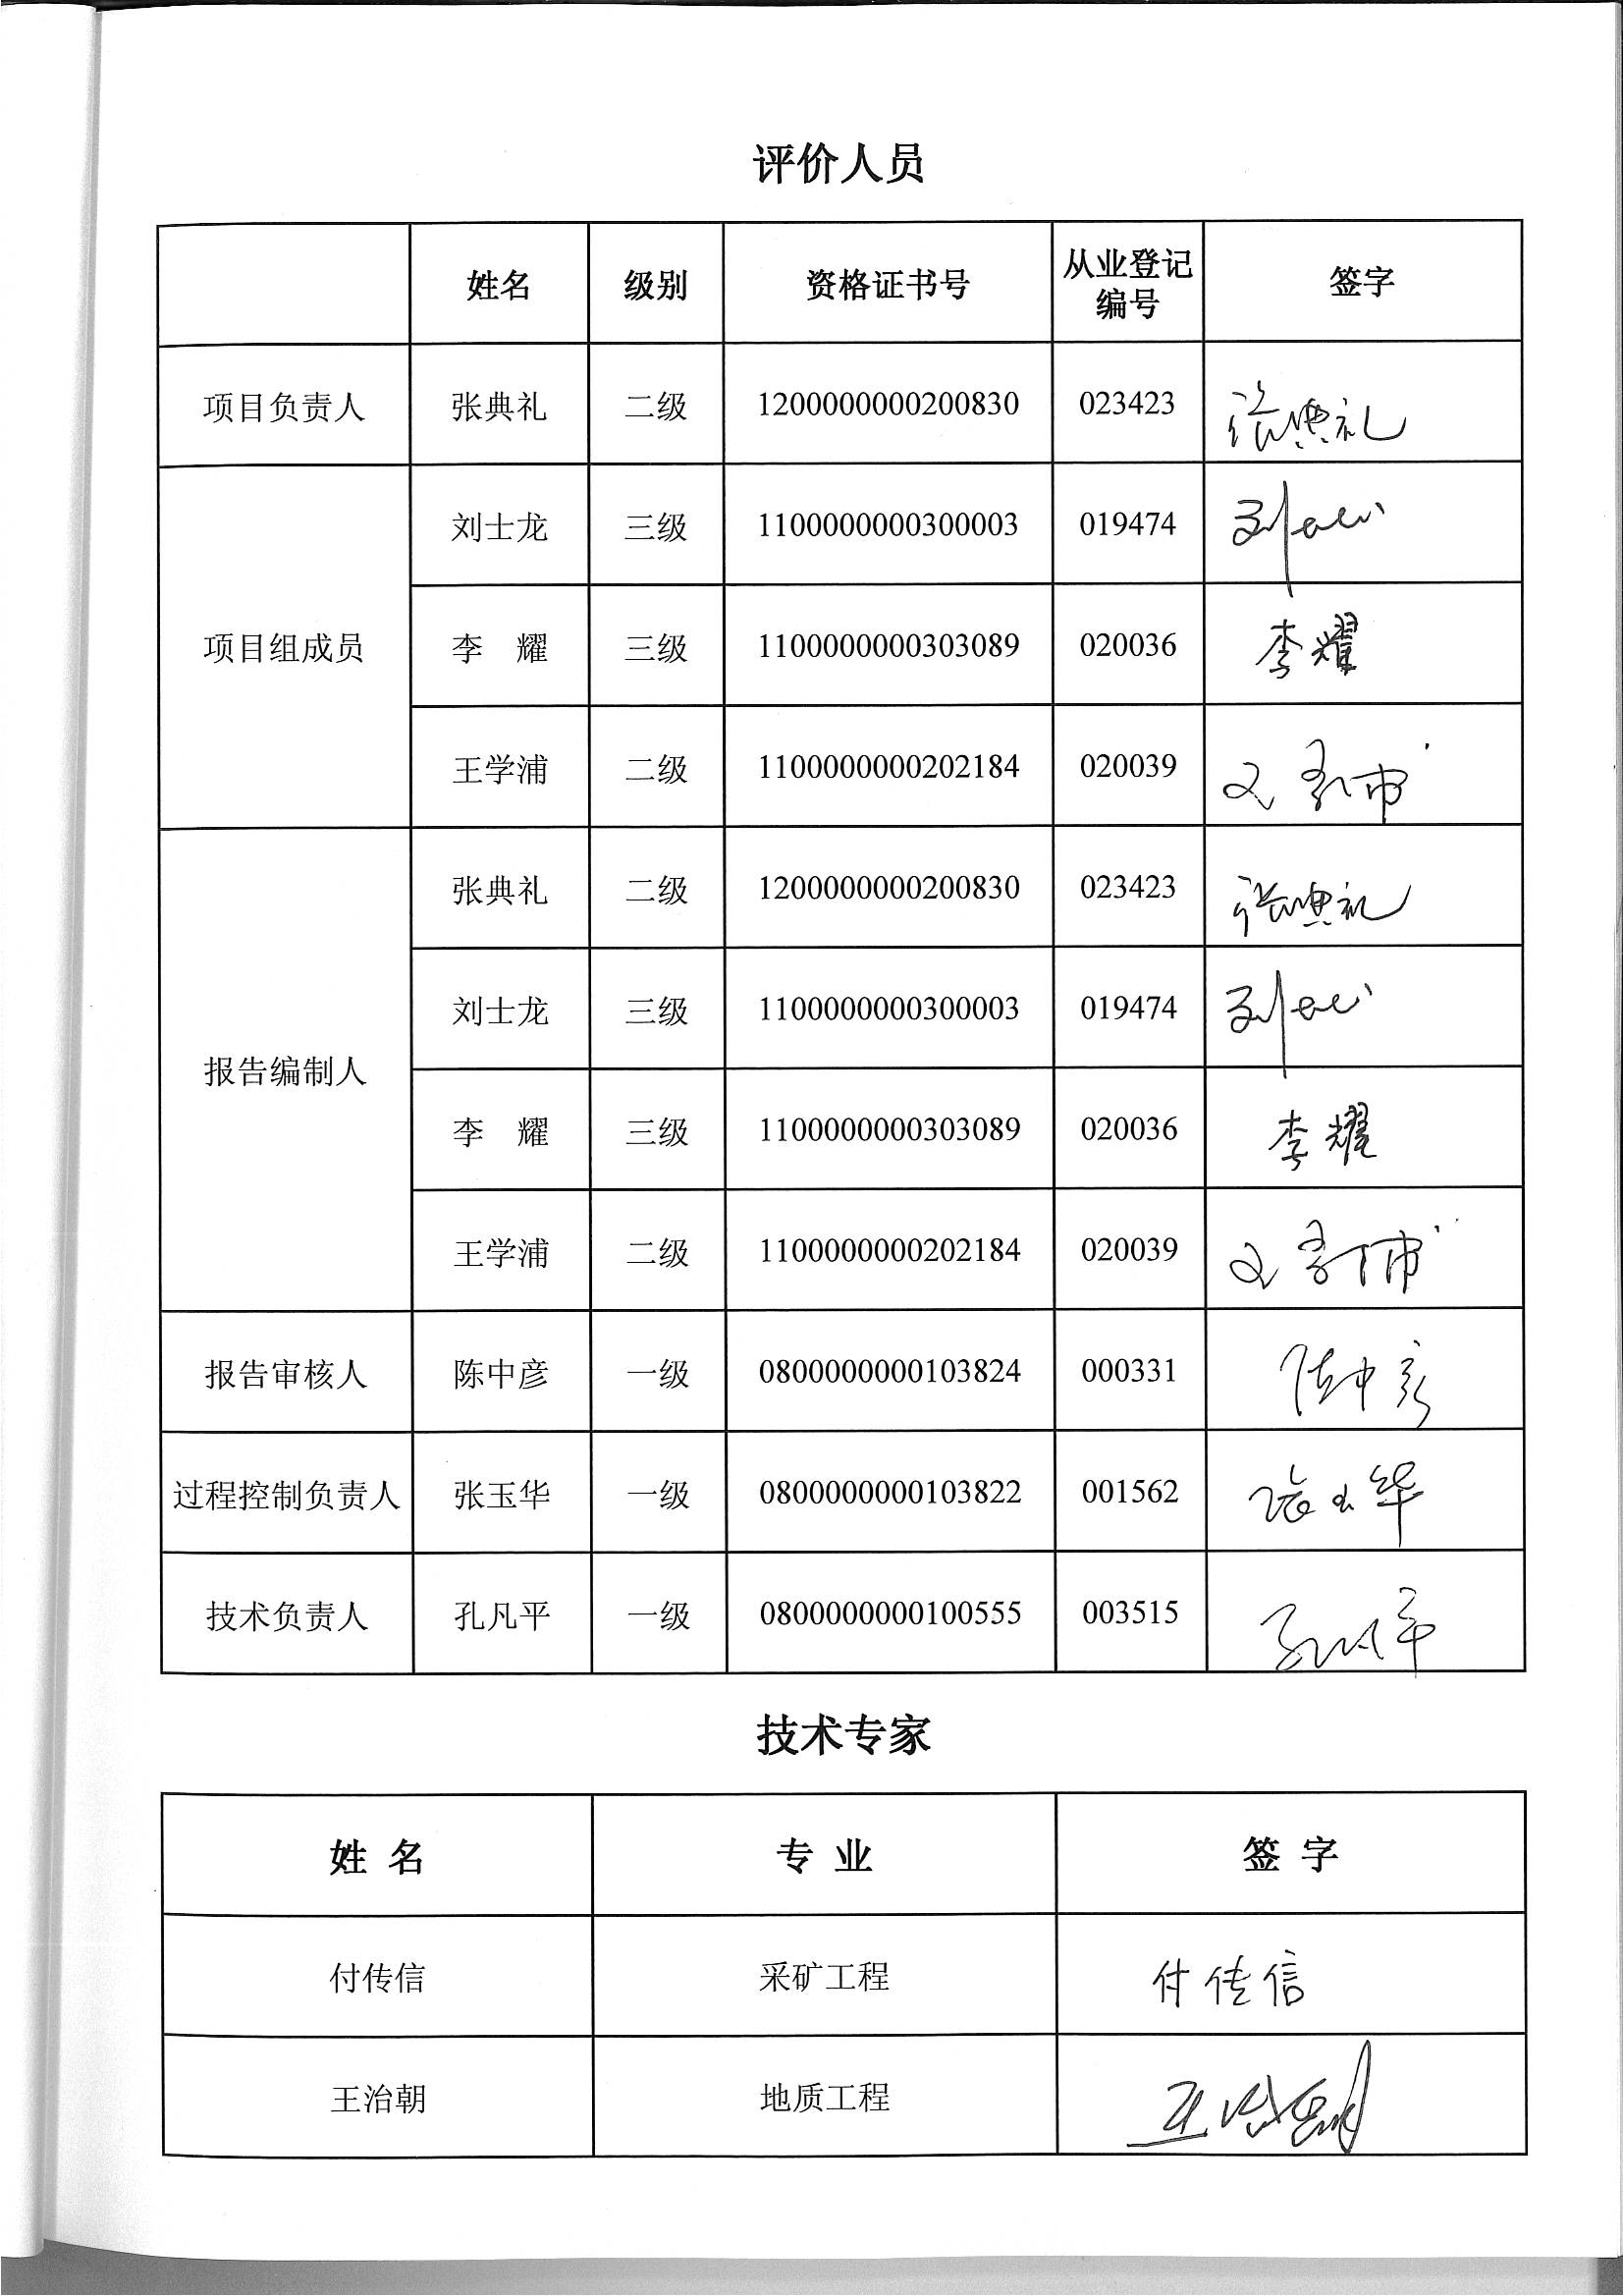 评价人员
姓名 级别 资格证书号 从业登记编号 签字
项目负责人 张典礼 二级 1200000000200830 023423 张典礼
项目组成员 刘士龙 三级 1100000000300003 019474
李 耀 三级 1100000000303089 020036 李耀
王学浦 二级 1100000000202184 020039
报告编制人 张典礼 二级 1200000000200830 023423 张典礼
刘士龙 三级 1100000000300003 019474
李 耀 三级 1100000000303089 020036 李耀
王学浦 二级 1100000000202184 020039
报告审核人 陈中彦 一级 0800000000103824 000331 陈中彦
过程控制负责人 张玉华 一级 0800000000103822 001562 张玉华
技术负责人 孔凡平 一级 0800000000100555 003515
技术专家
姓 名 专 业 签 字
付传信 采矿工程 付传信
王治朝 地质工程